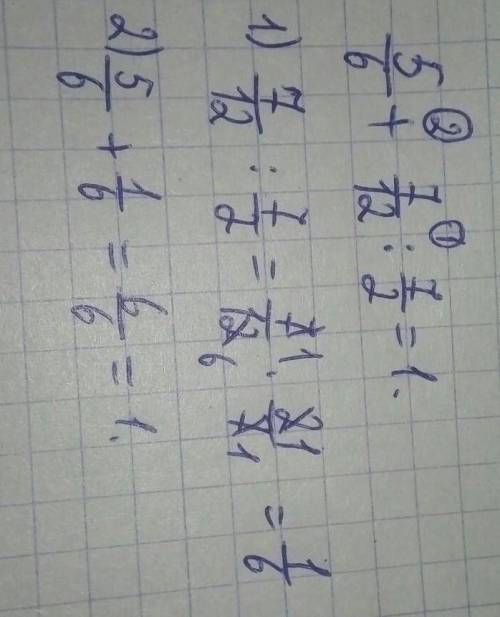 5/6 +② 7/12 :① 7/2 = 1.
1) 7/12 : 7/2 = 7̸1/1̸2̸6 · 2̸1/7̸1 = 1/6
2) 5/6 + 1/6 = 6/6 = 1.